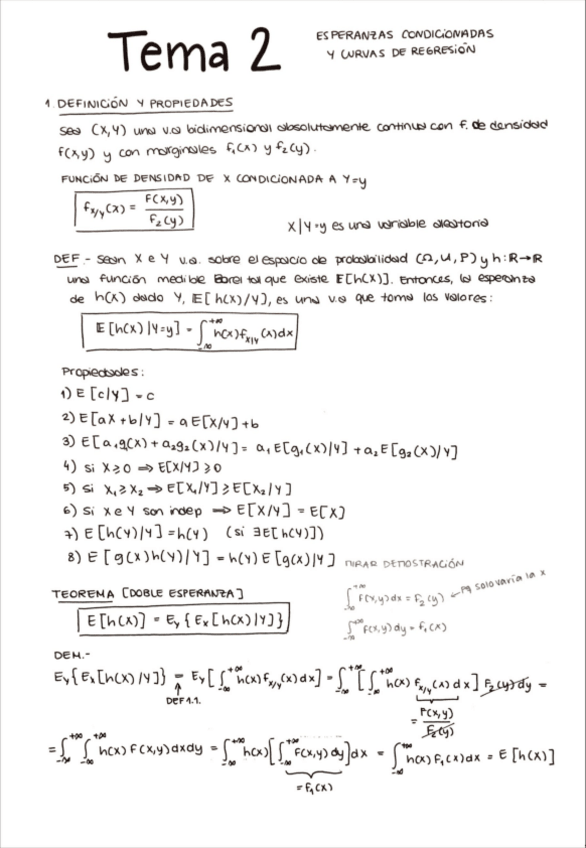 Tema 2
ESPERANZAS CONDICIONADAS
Y CURVAS DE REGRESIÓN
1. DEFINICIÓN Y PROPIEDADES
Sea (X,Y) una v.a bidimensional absolutamente continua con f. de densidad
f(x,y) y con marginales f₁(x) y f₂(y).
FUNCIÓN DE DENSIDAD DE X CONDICIONADA A Y=y
f_{X/Y}(x) = F(x,y) / F₂(y)
X|Y=y es una variable aleatoria
DEF.- Sean X e Y v.a. sobre el espacio de probabilidad (Ω, U, P) y h: R→R
una función medible Borel tal que existe E[h(X)]. Entonces, la esperanza
de h(X) dado Y, E[h(X)/Y], es una v.a que toma los valores:
E[h(X)|Y=y] = ∫_{-∞}^{+∞} h(x) f_{X|Y}(x)dx
Propiedades:
1) E[c/Y] = c
2) E[aX+b/Y] = a E[X/Y]+b
3) E[a₁g(X)+a₂g₂(X)/Y] = a₁E[g₁(X)/Y] + a₂E[g₂(X)/Y]
4) si X≥0 ⟹ E[X/Y] ≥0
5) si X₁≥X₂ ⟹ E[X₁/Y] ≥ E[X₂/Y]
6) si X e Y son indep ⟹ E[X/Y] = E[X]
7) E[h(Y)/Y] = h(Y) (si ∃E[h(Y)])
8) E[g(X)h(Y)/Y] = h(Y) E[g(X)/Y] MIRAR DEMOSTRACIÓN
TEOREMA [DOBLE ESPERANZA]
E[h(X)] = E_Y{E_X[h(X)|Y]}
∫_{-∞}^{+∞} F(x,y)dx = F₂(y) ← pq solo varía la x
∫_{-∞}^{+∞} F(x,y)dy = f₁(x)
DEM.-
E_Y{E_X[h(X)/Y]} = E_Y[∫_{-∞}^{+∞} h(x) f_{X/Y}(x)dx] = ∫_{-∞}^{+∞} [∫_{-∞}^{+∞} h(x) f_{X/Y}(x)dx] F₂(y)dy =
DEF 1.1.
= F(x,y) / F₂(y)
= ∫_{-∞}^{+∞} ∫_{-∞}^{+∞} h(x) F(x,y)dxdy = ∫_{-∞}^{+∞} h(x)[∫_{-∞}^{+∞} F(x,y)dy]dx = ∫_{-∞}^{+∞} h(x) F₁(x)dx = E[h(X)]
= f₁(x)